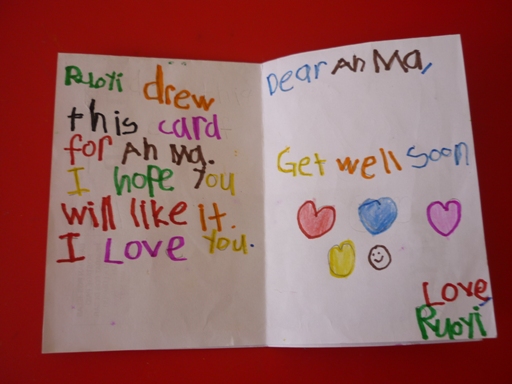 Ruoyi drew
this card
for Ah Ma.
I hope You
will like it.
I Love You.
Dear Ah Ma,
Get well Soon
Love,
Ruoyi